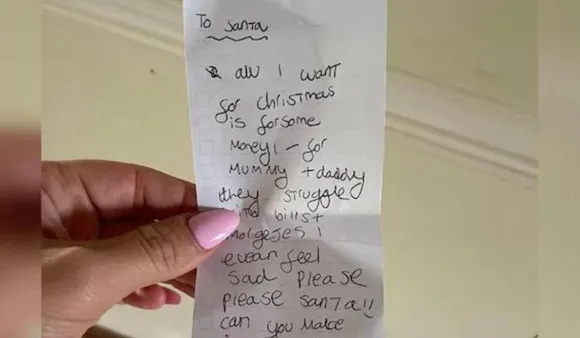 To Santa
all I want
for christmas
is forsome
Money! - for
Mummy + daddy
they struggle
bills +
morgeses I
evean feel
sad please
please santa!!
can you make